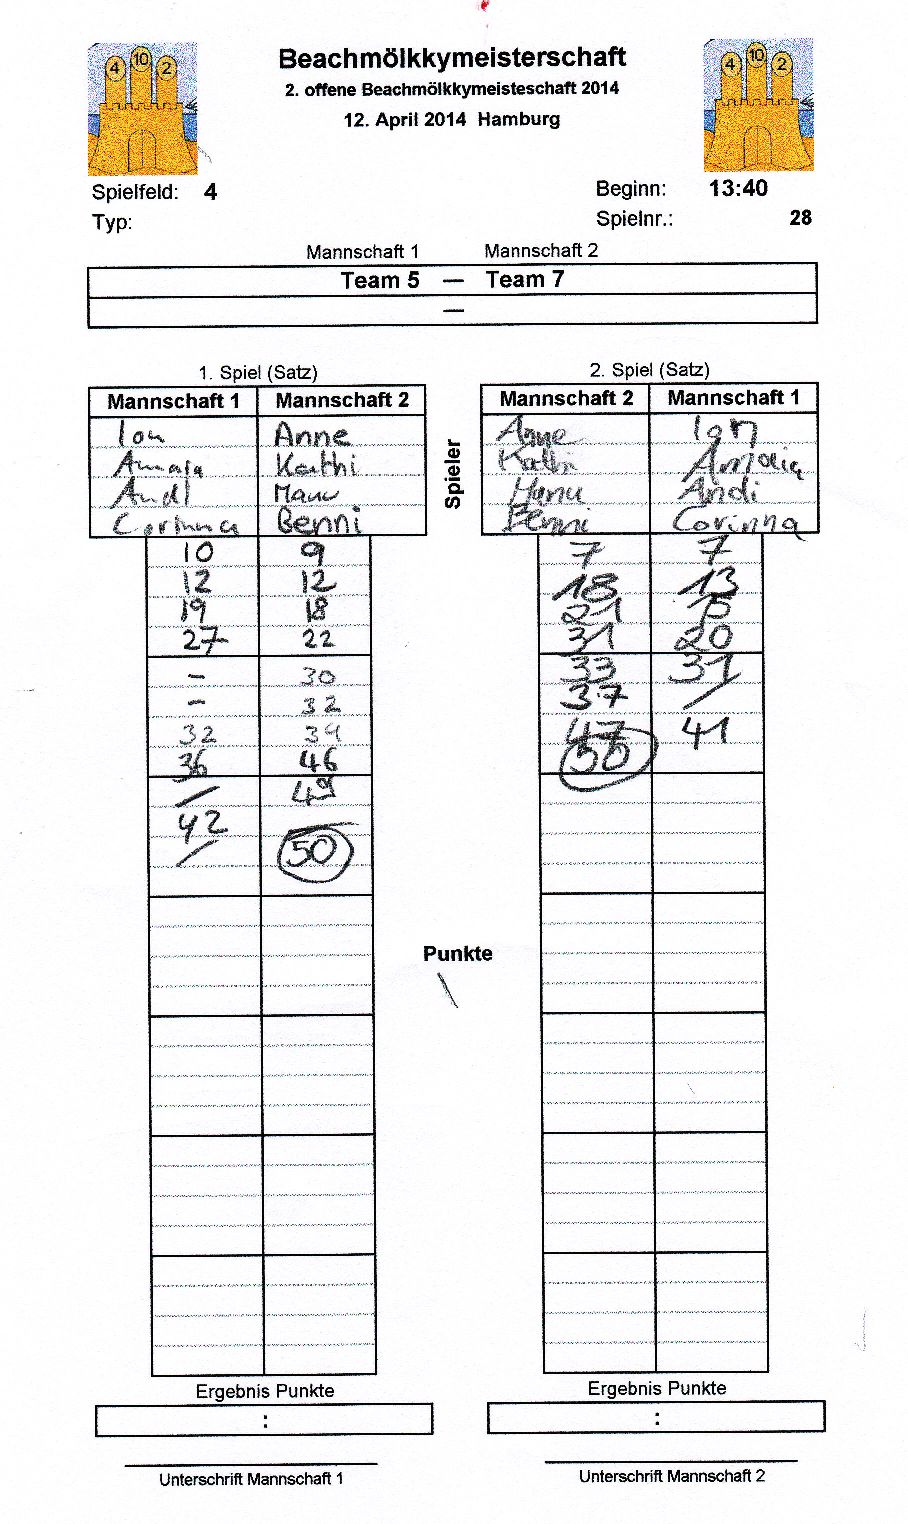 4 10 2
4 10 2
Beachmölkkymeisterschaft
2. offene Beachmölkkymeisteschaft 2014
12. April 2014 Hamburg
Spielfeld: 4 Beginn: 13:40
Typ: Spielnr.: 28
Mannschaft 1 Mannschaft 2
Team 5 — Team 7
—
1. Spiel (Satz) 2. Spiel (Satz)
Mannschaft 1 Mannschaft 2 Spieler Mannschaft 2 Mannschaft 1
Anne Anne
Kathi Kathi
Andi Manu Manu Andi
Corinna Benni Benni Corinna
10 9 7 7
12 12 18 13
19 18 21 15
27 22 31 20
- 30 33 31
- 32 37 /
32 39 47 41
36 46 50
/ 49
42
/ 50
Punkte
Ergebnis Punkte Ergebnis Punkte
: :
Unterschrift Mannschaft 1 Unterschrift Mannschaft 2